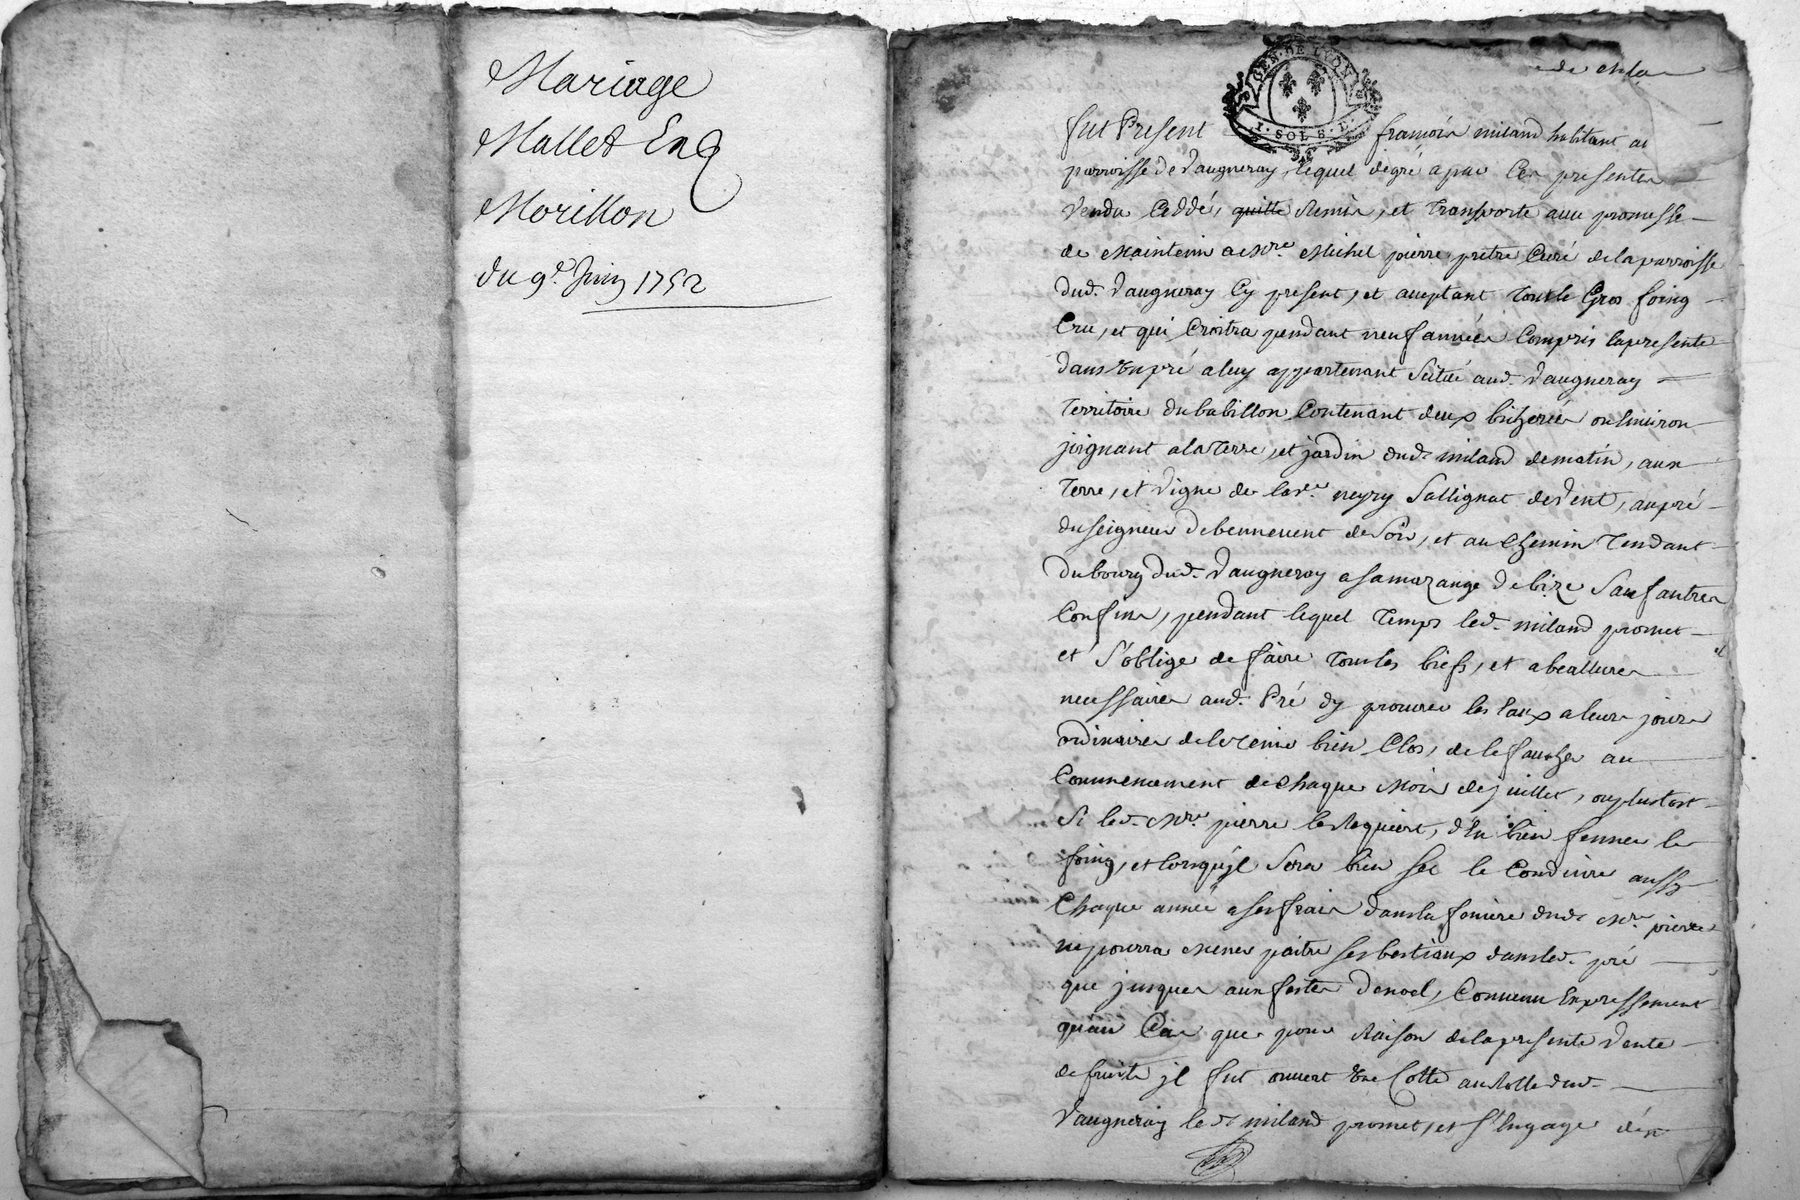 Mariage
Mallet Et
Morillon
du 9e. Juin 1752
GEN. DE LYON
I. SOLS.
fut Present françois miland habitant
parroisse de Vaugneray, lequel degré a par Ces presentes
Vendu Ceddé, quitte Remis, et Transporte avec promesse
de Maintenir a Mre. Michel pierre prêtre Curé de la parroisse
dud. Vaugneray Cy present, et acceptant Tout le Gros foing
Cru, et qui Croitra pendant neuf années Compris la presente
dans Un pré a luy appartenant Scitué aud. Vaugneray
Territoire du babillon Contenant deux bicherées ou Environ
joignant a la Terre, et jardin dud. miland de matin, aux
Terre, et Vigne de la de. neyry Sallignat de Vent, au pré
du seigneur de bennevent de Soir, et au Chemin Tendant
du bourg dud. Vaugneray a de bize Sauf autres
Confins, pendant lequel Temps led. miland promet
et S'oblige de faire Tous les biefs, et
necessaires aud. Pré dy procurer les Eaux a leurs jours
ordinaires de le Tenir bien Clos, de le faucher au
Commencement de Chaque Mois de juillet, ou plustost
Si led. Mre. pierre le Requiert, d'En bien fenner le
foing, et lorsqu'jl Sera bien sec le Conduire aussy
Chaque année a ses frais dans la feniere dud. Mre. pierre
ne pourra Mener paitre ses bestiaux dans led. pré
que jusques aux festes de noel, Convenu Expressement
qu'au Cas que pour Raison de la presente Vente
de fruits jl fut ouvert Une Cotte au Rolle dud.
Vaugneray led. miland promet, et s'Engage